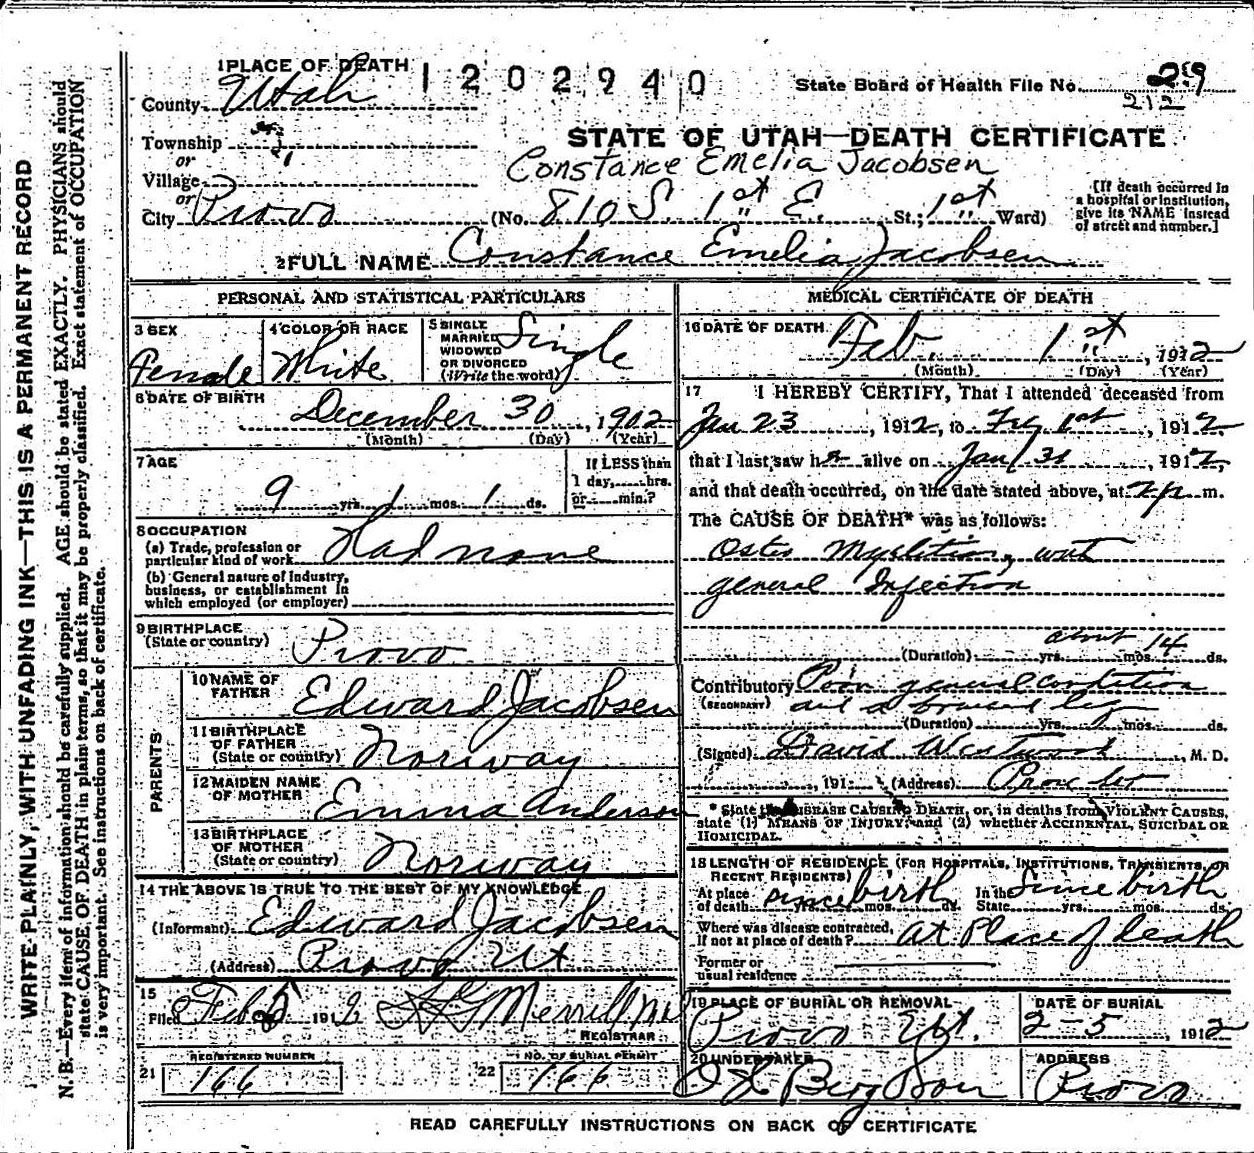 1 PLACE OF DEATH
1202940
State Board of Health File No. 29
212
County Utah
STATE OF UTAH—DEATH CERTIFICATE
Township
or
Constance Emelia Jacobsen
Village
or
City Provo (No. 810 S. 1st E. St.; 1st Ward)
[If death occurred in
a hospital or institution,
give its NAME instead
of street and number.]
2 FULL NAME Constance Emelia Jacobsen
PERSONAL AND STATISTICAL PARTICULARS
3 SEX
Female
4 COLOR OR RACE
White
5 SINGLE
MARRIED
WIDOWED
OR DIVORCED
(Write the word)
Single
6 DATE OF BIRTH
December 30, 1902
(Month) (Day) (Year)
7 AGE
9 yrs. 1 mos. 1 ds.
If LESS than
1 day, hrs.
or min.?
8 OCCUPATION
(a) Trade, profession or
particular kind of work Had none
(b) General nature of Industry,
business, or establishment in
which employed (or employer)
9 BIRTHPLACE
(State or country) Provo
PARENTS
10 NAME OF
FATHER Edward Jacobsen
11 BIRTHPLACE
OF FATHER
(State or country) Norway
12 MAIDEN NAME
OF MOTHER Emma Anderson
13 BIRTHPLACE
OF MOTHER
(State or country) Norway
14 THE ABOVE IS TRUE TO THE BEST OF MY KNOWLEDGE
(Informant) Edward Jacobsen
(Address) Provo Ut
15
Filed Feb 2 1912 Merrill
REGISTRAR
REGISTERED NUMBER
21 166
NO. OF BURIAL PERMIT
22 166
MEDICAL CERTIFICATE OF DEATH
16 DATE OF DEATH
Feb. 1st, 1912
(Month) (Day) (Year)
17 I HEREBY CERTIFY, That I attended deceased from
Jan 23, 1912, to Feb 1st, 1912.
that I last saw her alive on Jan 31, 1912,
and that death occurred, on the date stated above, at 2 p m.
The CAUSE OF DEATH* was as follows:
Osteo Myelitis, with
general Infection
about 14
(Duration) yrs. mos. ds.
Contributory Poor general condition
(SECONDARY) and a bruised leg
(Duration) yrs. mos. ds.
(Signed) David Westwood, M. D.
, 191 (Address) Provo
* State the DISEASE CAUSING DEATH, or, in deaths from VIOLENT CAUSES,
state (1) MEANS OF INJURY; and (2) whether ACCIDENTAL, SUICIDAL OR
HOMICIDAL.
18 LENGTH OF RESIDENCE (FOR HOSPITALS, INSTITUTIONS, TRANSIENTS, OR
RECENT RESIDENTS)
At place
of death since birth yrs. mos. ds.
In the
State Since birth yrs. mos. ds.
Where was disease contracted,
if not at place of death? at Place of death
Former or
usual residence
19 PLACE OF BURIAL OR REMOVAL
Provo Ut.
DATE OF BURIAL
2-5, 1912
20 UNDERTAKER
Berg & Son
ADDRESS
Provo
READ CAREFULLY INSTRUCTIONS ON BACK OF CERTIFICATE
WRITE PLAINLY, WITH UNFADING INK—THIS IS A PERMANENT RECORD
N. B.—Every item of information should be carefully supplied. AGE should be stated EXACTLY. PHYSICIANS should
state CAUSE OF DEATH in plain terms, so that it may be properly classified. Exact statement of OCCUPATION
is very important. See instructions on back of certificate.